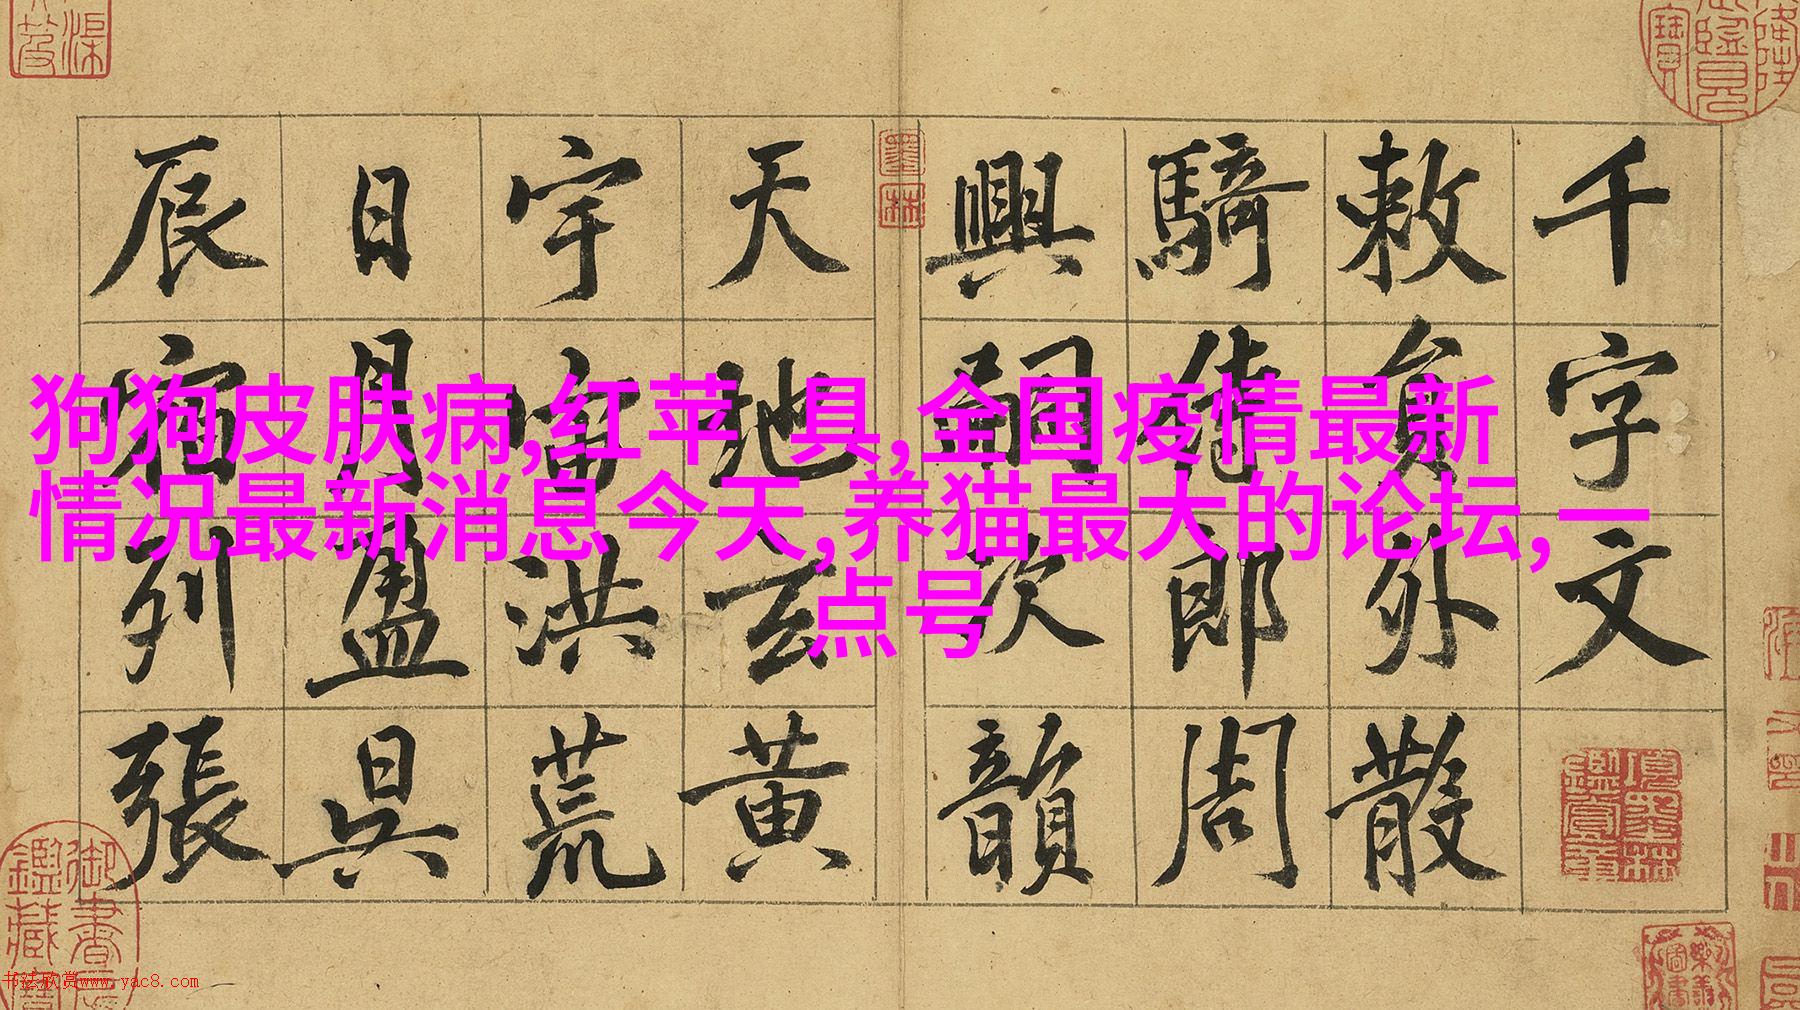 狗狗皮肤病,红苹 具,全国疫情最新
情况最新消息今天,养猫最大的论坛,一
点号
千字文
敕員外散
騎侍郎周
興嗣次韻
天地玄黄
宇宙洪荒
日月盈昃
辰宿列張
墨林
书法欣赏www.yac8.com